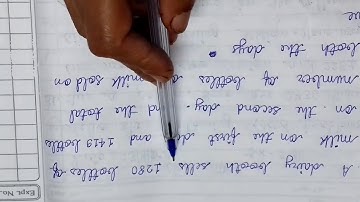 A dairy booth sells 1280 bottles of
milk on the first day and 1413 bottles
on the second day. Find the total
number of bottles of milk sold on
both the days
Expt. No.